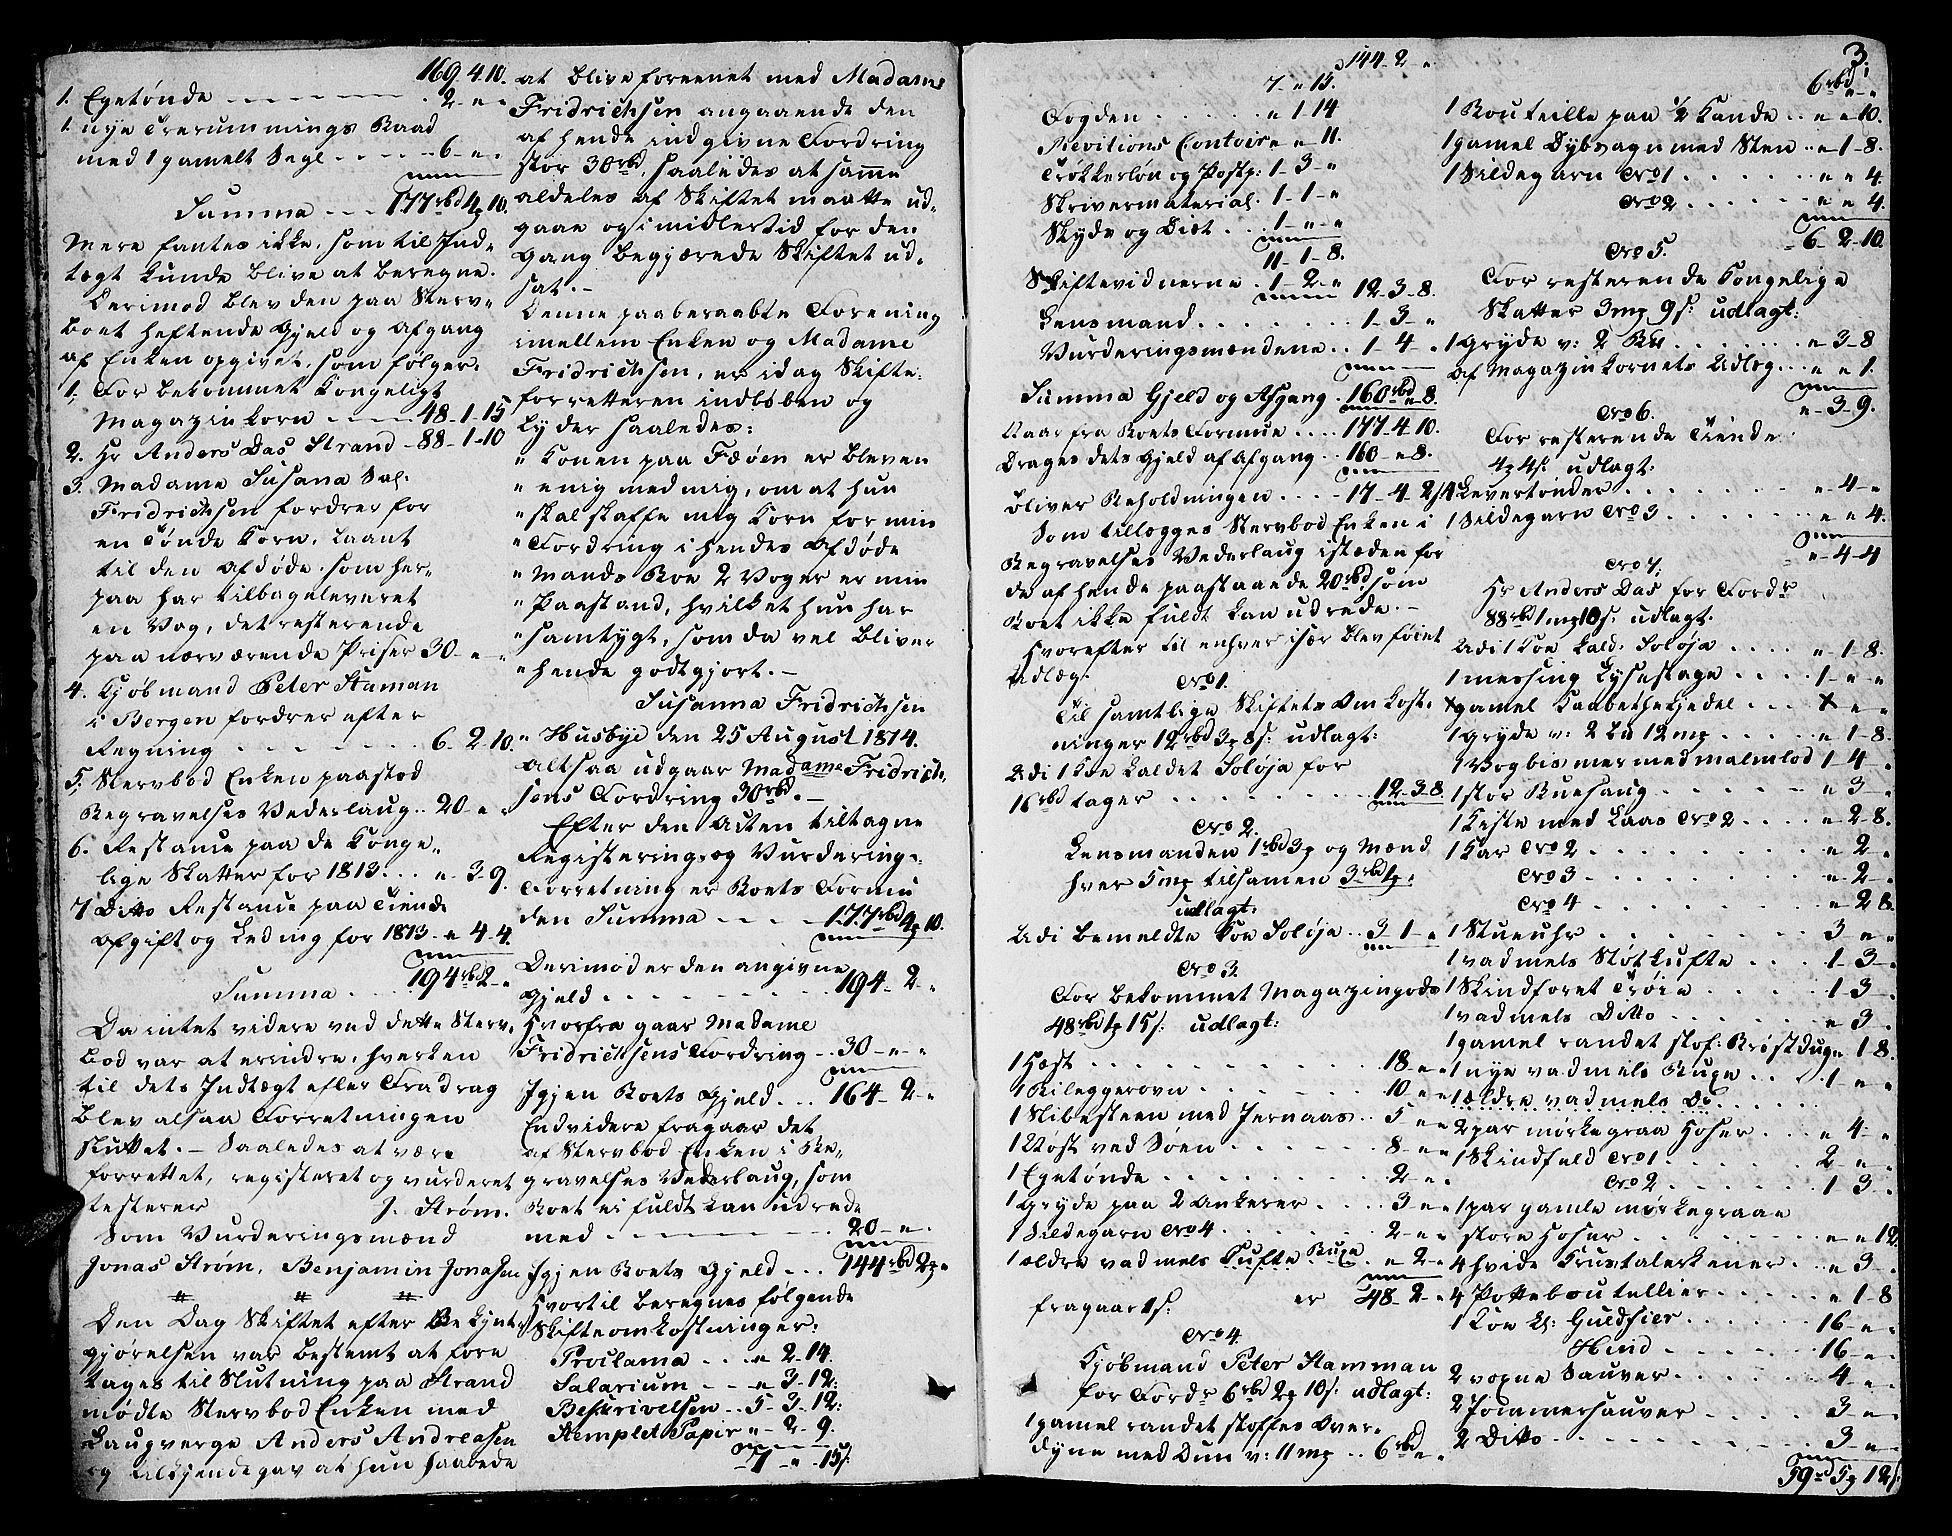 169. 4. 10.
1. Egetønde - - - - - . 2 - " - "
1. nye Trerummings Baad
med 1 gamelt Segl - - - - - 6 - " -
Summa - - - 177 rbd 4 ȝ 10.
Mere fantes ikke, som til Ind-
tægt kunde blive at beregne.
Derimod blev den paa Sterv-
boet heftende Gjeld og Afgang
af Enken opgivet, som følger.
1. For bekommet Kongeligt
Magazinkorn - - - - 48 - 1 - 15
2. Hr Anders Das Strand - 88 - 1 - 10
3. Madame Susana Sal.
Fridrichsen fordrer for
en Tønde Korn, laant
til den afdøde, som her-
paa har tilbageleveret
en Vog, det resterende
paa nærværende Priser 30 - " - "
4. Kjøbmand Peter Staman
i Bergen fordrer efter
Regning - - - - - 6 - 2 - 10.
5. Stervbod Enken paastod
Begravelses Vederlaug .. 20 - " - "
6. Restance paa de Konge-
lige Skatter for 1813 . . . " - 3 - 9.
7 Ditto Restance paa Tiende
afgift og Leding for 1813 - " 4 - 4.
Summa . . . 194 rbd 2 - "
Da intet videre ved dette Sterv-
bod var at erindre, hverken
til dets Indtægt eller Fradrag
blev altsaa Forretningen
sluttet. - Saaledes at være
forrettet, registeret og vurderet
testerer J. Strøm.
Som Vurderingsmænd
Jonas Strøm, Benjamin Jonasen
Den Dag Skiftet efter Bekjent-
gjørelsen var bestemt at fore
tages til Slutning paa Strand
mødte Stervbod Enken med
Laugverge Anders Andreasen
og tilkjendegav at hun haabede
at blive foreenet med Madame
Fridrichsen angaaende den
af hende indgivne Fordring
stor 30 rbd, saaledes at samme
aldeles af Skiftet maatte ud-
gaae og imidlertid for den
Gang begjærede Skiftet ud-
sat. -
Denne paaberaabte Forening
imellem Enken og Madame
Fridrichsen, er idag Skifte-
forretteren indløben og
lyder saaledes:
" Konen paa Fæøen er bleven
" enig med mig, om at hun
" skal skaffe mig Korn for min
" Fordring i hendes Afdøde
" Mands Boe 2 Voger er min
" Paastand, hvilket hun har
" samtygt, som da vel bliver
" hende godtgjort. -
Susanna Fridrichsen
" Husbye den 25 August 1814.
Altsaa udgaar Madame Fridrich-
sens Fordring 30 rbd. -
Efter den Acten tiltagne
Registerings og Vurderings-
Forretning er Boets Formu
den Summa - - - - 177 rbd 4 ȝ 10.
Derimod er den angivne
Gjeld . . . . . . . 194 - 2 - "
Hvorfra gaar Madame
Fridrichsens Fordring - . 30 - " - "
Igjen Boets Gjeld . . . 164 - 2 - "
Endvidere fragaar det
af Stervbod Enken i Be-
gravelses Vederlaug, som
Boet ei fuldt kan udrede
med - - - - - - 20 - " -
Igjen Boets Gjeld . . . 144 rbd 2 ȝ "
Hvortil beregnes følgende
Skifteomkostninger:
Proclama . . . " 2 - 14.
Salarium - - - " 3 - 12:
Beskrivelsen . . 5 - 3 - 12:
Stemplet Papir " - 2 - 9.
7 - " - 15 s:
144 - 2 "
7 - " 15.
Fogden . . . . . " 1 - 14
Revitions Contoir " " - 11.
Trøkkerløn og Postp: 1 - 3 - "
Skrivermaterial. 1 - 1 - "
Skyds og Diæt . . . 1 - " - "
11 - 1 - 8.
Skiftevidnerne . 1 - 2 - " 12 - 3 - 8.
Lensmand . . . . . . . . 1 - 3 - "
Vurderingsmændene . . 1 - 4 - "
Summa Gjeld og Afgang . 160 rbd " 8.
Naar fra Boets Formue . . . . 177 - 4 - 10.
Drages dets Gjeld af Afgang . . 160 - " 8.
bliver Beholdningen . . . . 17 - 4 - 2 s
Som tillegges Stervbod Enken i
Begravelses Vederlaug istæden for
de af hende paastaaende 20 rbd som
Boet ikke fuldt kan udrede. -
Hvorefter til enhver især blev føiet
Udlæg.
No 1.
Til samtlige Skiftets Omkost-
ninger 12 rbd 3 ȝ 8 s: udlagt:
Udi 1 Koe kaldet Soløja for
16 rbd tager . . . . . . . . 12 - 3 - 8
No 2.
Lensmanden 1 rbd 3 ȝ og Mænd
hver 5 mȝ tilsamen 3 rbd 1 ȝ:
udlagt:
Udi bemeldte Koe Soløja . . 3 - 1 - "
No 3.
For bekommet Magazingods
48 rbd 1 ȝ 15 s: udlagt:
1 Hæst . . . . . . . . . 18 - " "
1 Bileggerovn . . . . . . 10 - " "
1 Slibesteen med Jernaas . . 5 - " "
1 Nost ved Søen . . . . . 8 - " "
1 Egetønde . . . . . . . 2 - " "
1 Gryde paa 2 Ankerer . . . . 3 - " "
1 Sildegarn No 4 . . . . . . 2 - " "
1 ældre vadmels Kufte Buxe . " 2 - "
er 48 - 2 - "
fragaar 1 s:
No 4.
Kjøbmand Peter Stamman
for Fordr 6 rbd 2 ȝ 10 s: udlagt:
1 gamel randet stoffes Over-
dyne med Dun v: 11 mȝ . . 6 rbd " "
3.
6 rbd " "
1 Bouteille paa 1/2 Kande . . " " 10.
1 gamel Dybsagn med Sten . . " 1 - 8.
1 Sildegarn No 1 . . . . . . " " 4.
No 2 . . . . . . " " 4.
6 - 2 - 10.
No 5.
For resterende Kongelige
Skatter 3 mȝ 9 s: udlagt:
1 Gryde v: 2 . . . . . . . " 3 - 8
af Magazin Kornets Udlæg . . . " " 1.
" - 3 - 9.
No 6.
For resterende Tiende
4 ȝ 4 s: udlagt:
4 Levertønder . . . . . . . " - 4 - "
1 Sildegarn No 3 . . . . . . " " 4.
" - 4 - 4
No 7.
Hr Anders Das for Fordr
88 rbd 1 mȝ 10 s: udlagt:
Udi 1 Koe kald. Soløja . . . . " - 1 - 8.
1 messing Lysestage . . . . 1 - " - "
1 gamel Kaabberkjedel . . .
1 Gryde v: 2 bd 12 mȝ . . . . . " 1 - 8.
1 Vogbismer med malmlod 1 - 4 - "
1 stor Buesaug . . . . . . " 3 - "
1 Kiste med Laas No 2 . . . . " - 2 - 8.
1 Kar No 2 . . . . . . . . . " 2 - "
No 3 . . . . . . . . . . . " - 2 - "
No 4 . . . . . . . . . . " 2 8.
1 Stueuhr . . . . . . . . . 3 - " - "
1 vadmels Støtkufte . . . . 1 - 3 - "
1 Skindforet Trøie . . . . . 1 - 3 - "
1 vadmels Ditto . . . . . . " - 3 - "
1 gamel randet stof: Brøstdug " 1 - 8.
1 nye vadmels Buxe . . . . 1 - " - "
1 ældre vadmels Do . . . .
2 par mørkegraa Hoser . . . " - 4 - "
1 Skindfeld No 1 . . . . . . 2 - " - "
No 2 . . . . . . 1 - 3 - "
1 par gamle mørkegraae
store Hoser . . . . . . . . " " 12
4 hvide Krustalerkener . . . " 3 - "
4 Potteboutellier . . . . . . " 1 - 8
1 Koe kl: Guldsier . . . . . 16 - " - "
Hind . . . . . . 16 - " - "
2 voxne Sauver . . . . . . 4 - " - "
2 Jommersauver . . . . . 3 - " - "
2 Ditto . . . . . . . . . . 3 - " - "
59 rbd 5 ȝ 12 s: